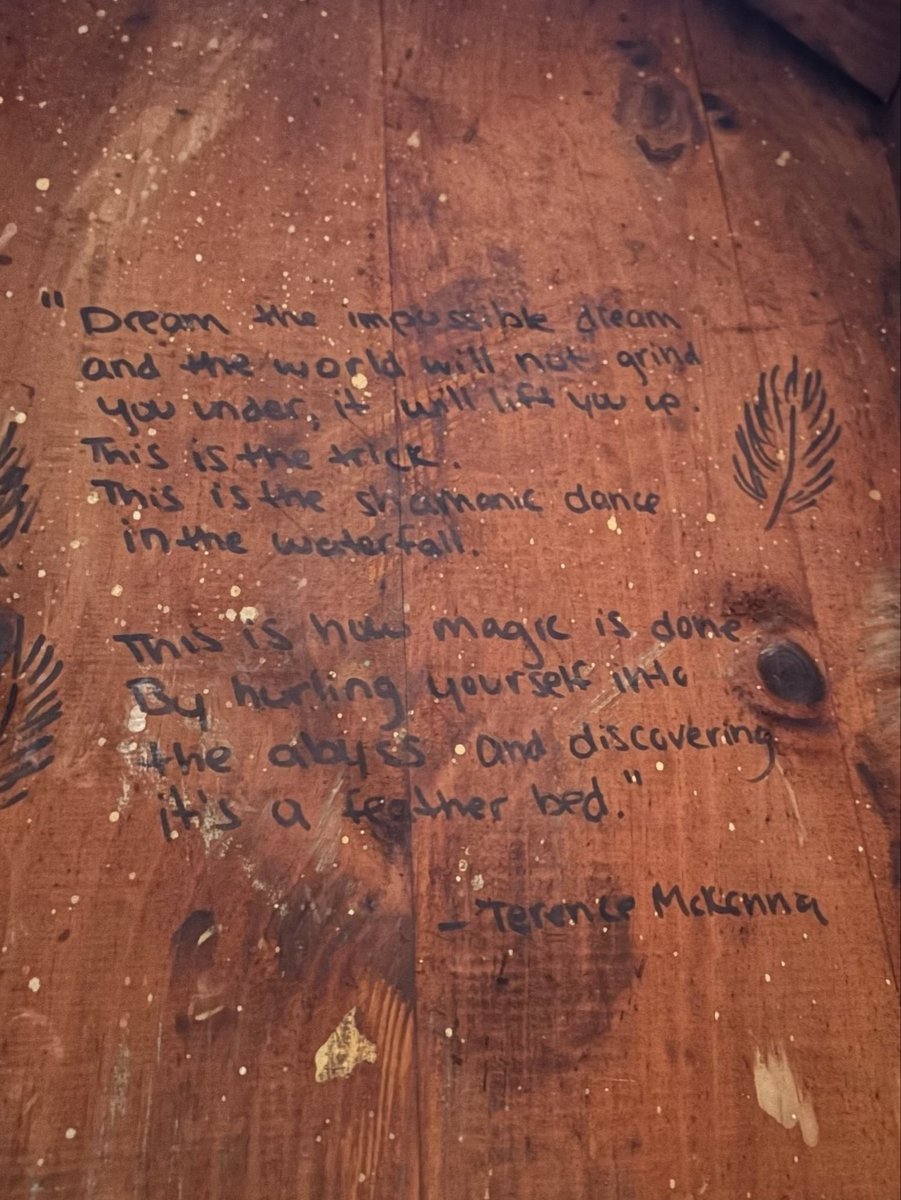 "Dream the impossible dream
and the world will not grind
you under, it will lift you up.
This is the trick.
This is the shamanic dance
in the waterfall.
This is how magic is done.
By hurling yourself into
the abyss and discovering
it's a feather bed."
- Terence McKenna